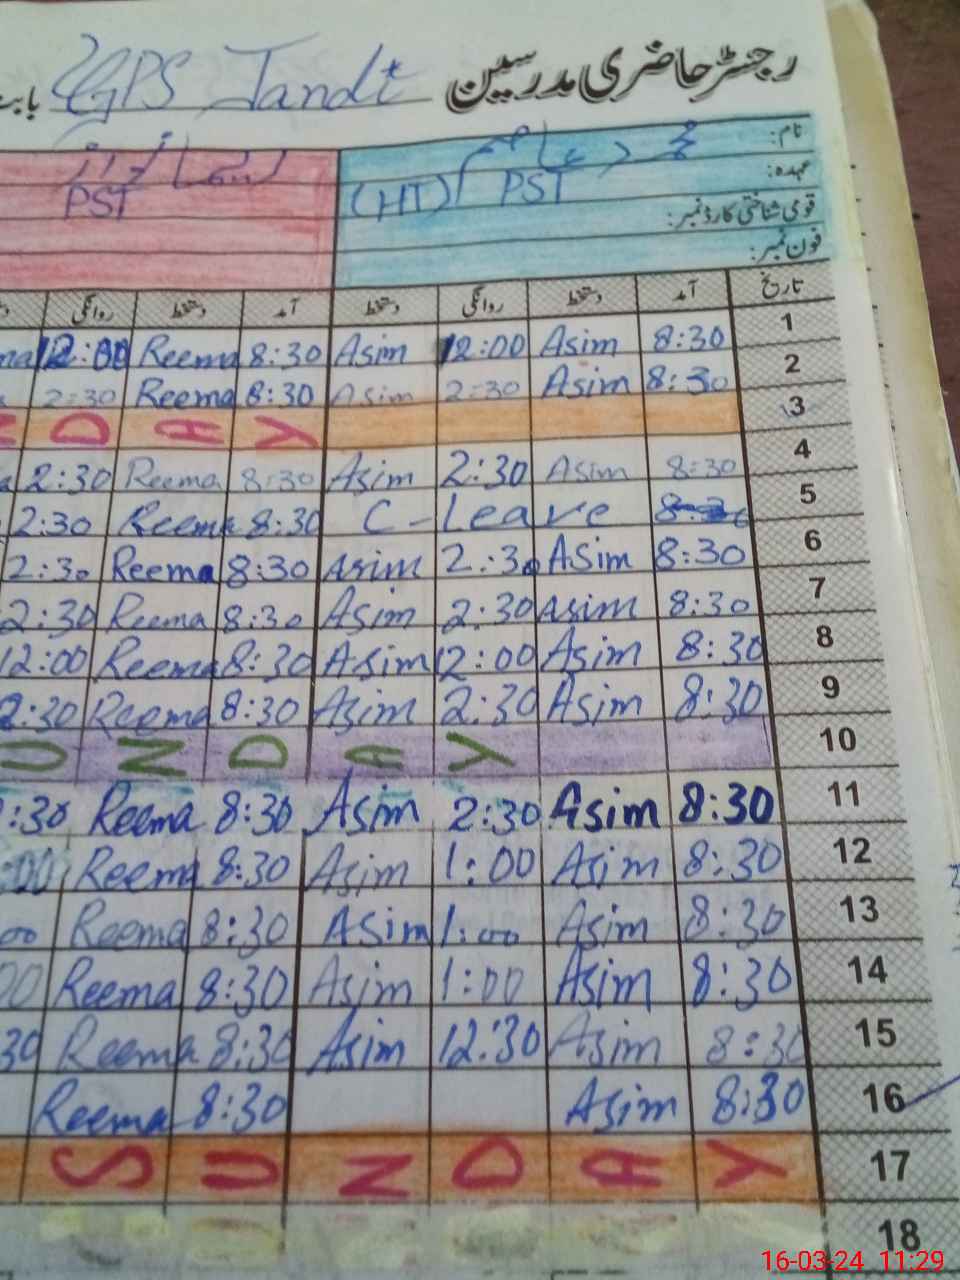 رجسٹر حاضری مدرسین GPS Tandi بابت
نام: محمد عاصم
عہدہ: PST (HT) PST
قومی شناختی کارڈ نمبر:
فون نمبر:
تاریخ آمد دستخط روانگی دستخط آمد دستخط روانگی
1 8:30 Asim 12:00 Asim 8:30 Reema 12:00
2 8:30 Asim 2:30 Asim 8:30 Reema 2:30
3 D A Y
4 8:30 Asim 2:30 Asim 8:30 Reema 2:30
5 C-Leave 8:30 Reema 2:30
6 8:30 Asim 2:30 Asim 8:30 Reema 2:30
7 8:30 Asim 2:30 Asim 8:30 Reema 2:30
8 8:30 Asim 12:00 Asim 8:30 Reema 12:00
9 8:30 Asim 2:30 Asim 8:30 Reema 2:30
10 U N D A Y
11 8:30 Asim 2:30 Asim 8:30 Reema :30
12 8:30 Asim 1:00 Asim 8:30 Reema :00
13 8:30 Asim 1:00 Asim 8:30 Reema 00
14 8:30 Asim 1:00 Asim 8:30 Reema 00
15 8:30 Asim 12:30 Asim 8:30 Reema 30
16 8:30 Asim 8:30 Reema
17 S U N D A Y
18
16-03-24 11:29